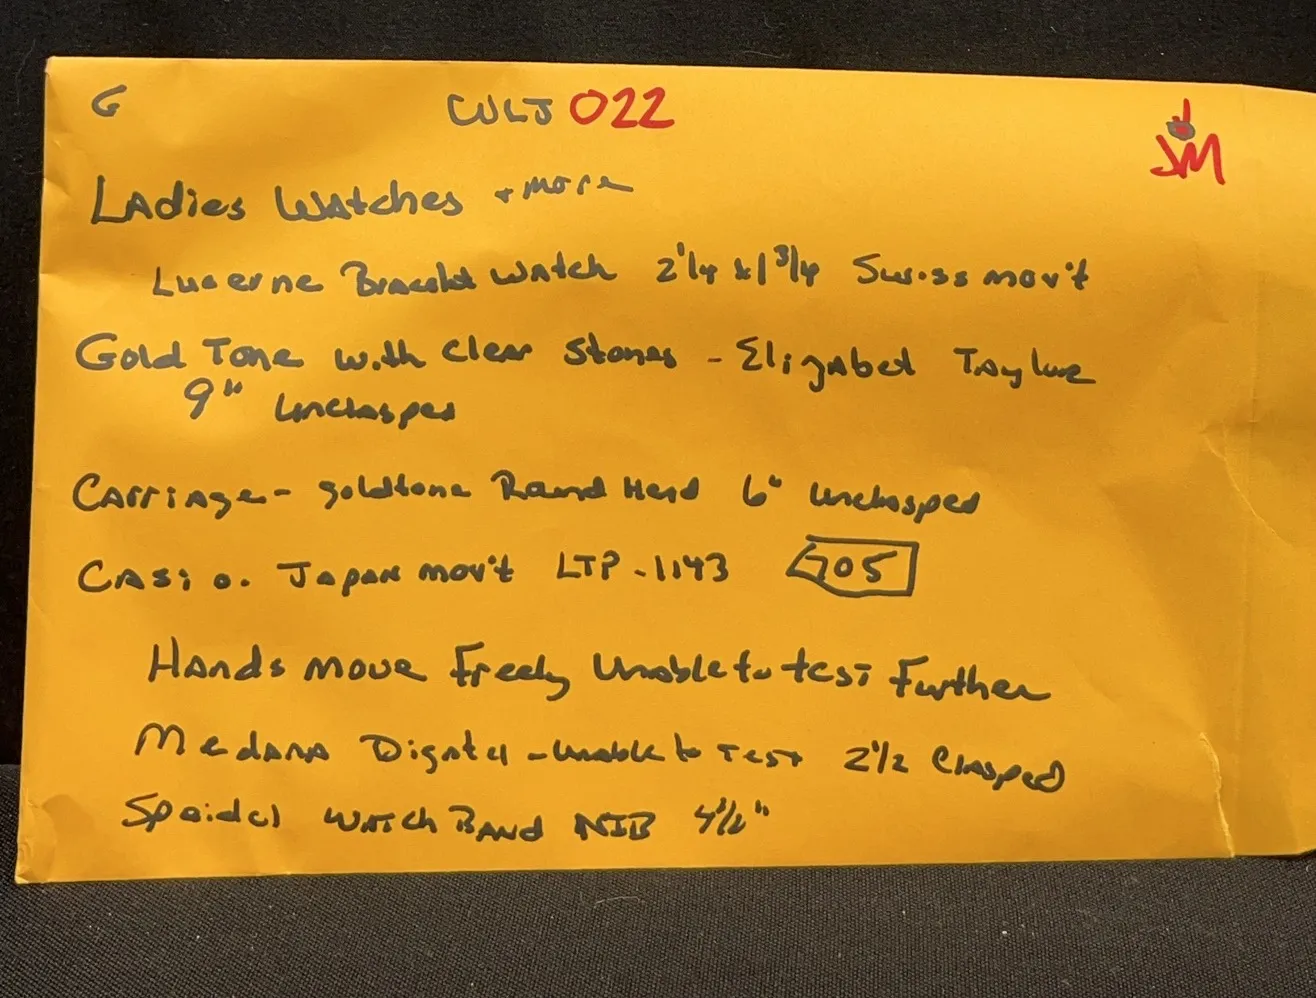 G CULJ 022
JM
LAdies WAtches + more
Lucerne Bracelet WAtch 2 1/4 x 1 3/4 Swiss mov't
Gold Tone with Clear Stones - Elizabet Taylure
9" Unclasped
CArriage - goldtone Round Head 6" Unclasped
CASiO. JApan mov't LTP-1143 705
HAnds move Freely Unable to test Further
MedanA Digatel - Unable to TesT 2 1/2 Clasped
Speidel WAtch BAnd NIB 4 1/2"